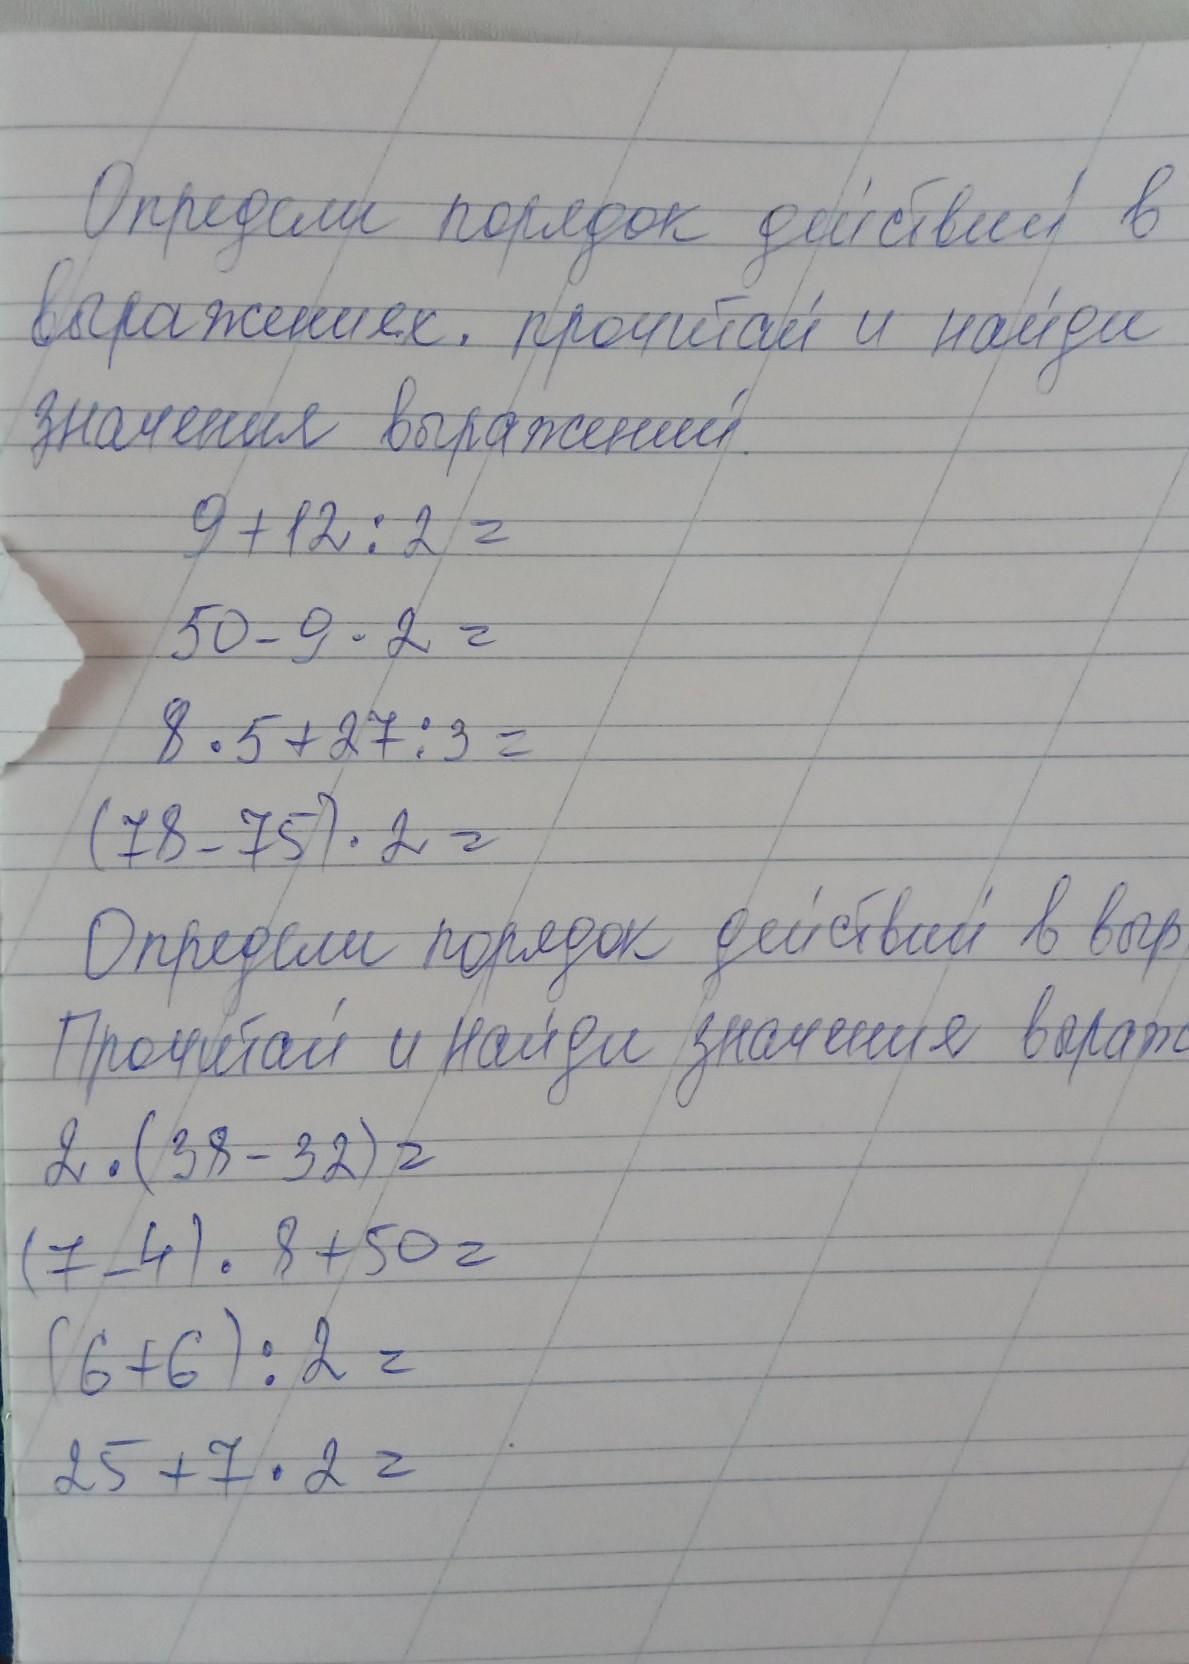 Определи порядок действий в
выражениях. прочитай и найди
значения выражений.
9+12:2=
50-9·2=
8·5+27:3=
(78-75)·2=
Определи порядок действий в выр
Прочитай и найди значения выраж
2·(38-32)=
(7-4)·8+50=
(6+6):2=
25+7·2=